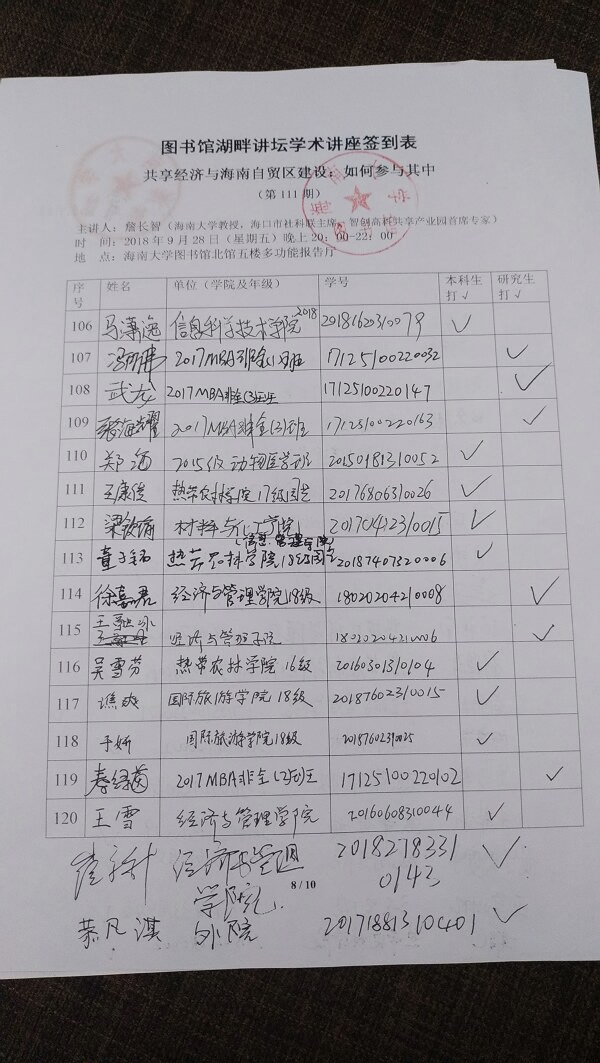 图书馆湖畔讲坛学术讲座签到表
共享经济与海南自贸区建设：如何参与其中
（第 111 期）
主讲人：詹长智（海南大学教授，海口市社科联主席，智创高科共享产业园首席专家）
时 间：2018 年 9 月 28 日（星期五）晚上 20：00-22：00
地 点：海南大学图书馆北馆五楼多功能报告厅
序号 姓名 单位（学院及年级） 学号 本科生打√ 研究生打√
106 马潇逸 信息科学技术学院2018 20181620310079 √
107 2017MBA非全(1)班 17125100220032 √
108 武龙 2017MBA非全(3)班 17125100220147 √
109 2017MBA非全(2)班 17125100220163 √
110 郑涵 2015级动物医学班 20150181310052 √
111 王康俊 热带农林学院17级园艺 20176806310026 √
112 材料与化工学院 20170412310015 √
113 热带农林学院18级 20187407320006 √
114 徐嘉君 经济与管理学院18级 18020204210008 √
115 王融冰 经济与管理学院 18020204210006 √
116 吴雪芬 热带农林学院 16级 20160301310104 √
117 谯爽 国际旅游学院 18级 20187602310015 √
118 于妍 国际旅游学院18级 20187602310025 √
119 秦绿茵 2017MBA非全(2)班 17125100220102 √
120 王雪 经济与管理学院 20160608310044 √
经济与管理 2018278331 √
学院 0143
8 / 10
恭凡淇 外院 20171881310401 √